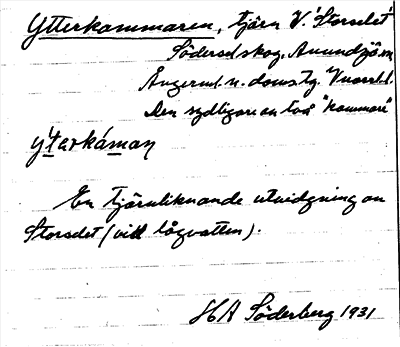 Ytterkammaren, tjärn V. Storselet
Söderselskog, Anundsjö sn
Ångerml. n. domstg. Vnorrl. l.
Den sydligare av två "kammare"
En tjärnliknande utvidgning av
Storselet (vid lågvatten).
HA Söderberg 1931